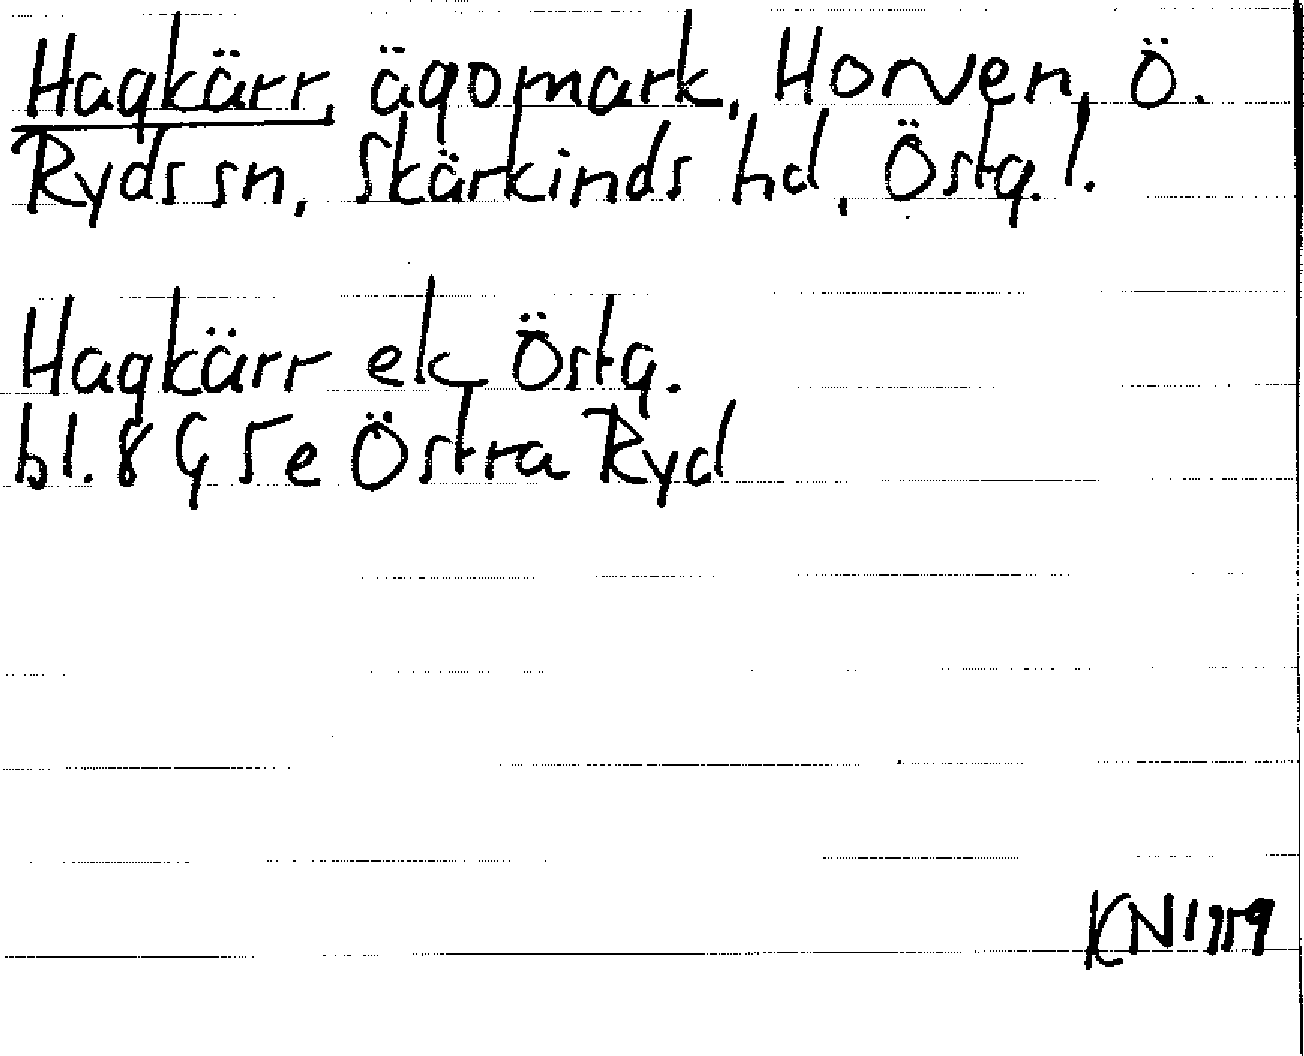 Hagkärr, ägomark, Horven, Ö.
Ryds sn, Skärkinds hd, Östg. l.
Hagkärr ek Östg.
bl. 8 G 5e Östra Ryd
KN 1959